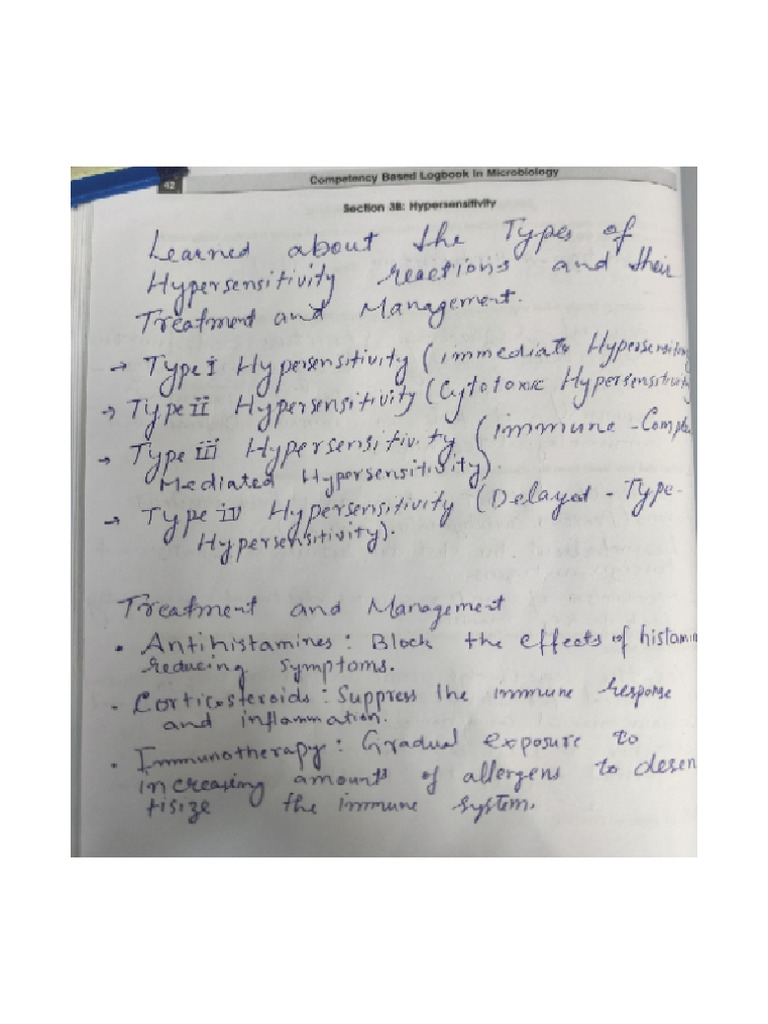 42
Competency Based Logbook in Microbiology
Section 3B: Hypersensitivity
Learned about the Types of
Hypersensitivity reactions and their
Treatment and Management.
→ Type I Hypersensitivity (immediate Hypersensitivity
→ Type II Hypersensitivity (Cytotoxic Hypersensitivity
→ Type III Hypersensitivity (immune-Comple
Mediated Hypersensitivity).
→ Type IV Hypersensitivity (Delayed-Type-
Hypersensitivity).
Treatment and Management
• Antihistamines: Block the effects of histamin
reducing symptoms.
• Corticosteroids: Suppress the immune response
and inflammation.
• Immunotherapy: Gradual exposure to
increasing amounts of allergens to desen
tisize the immune system.